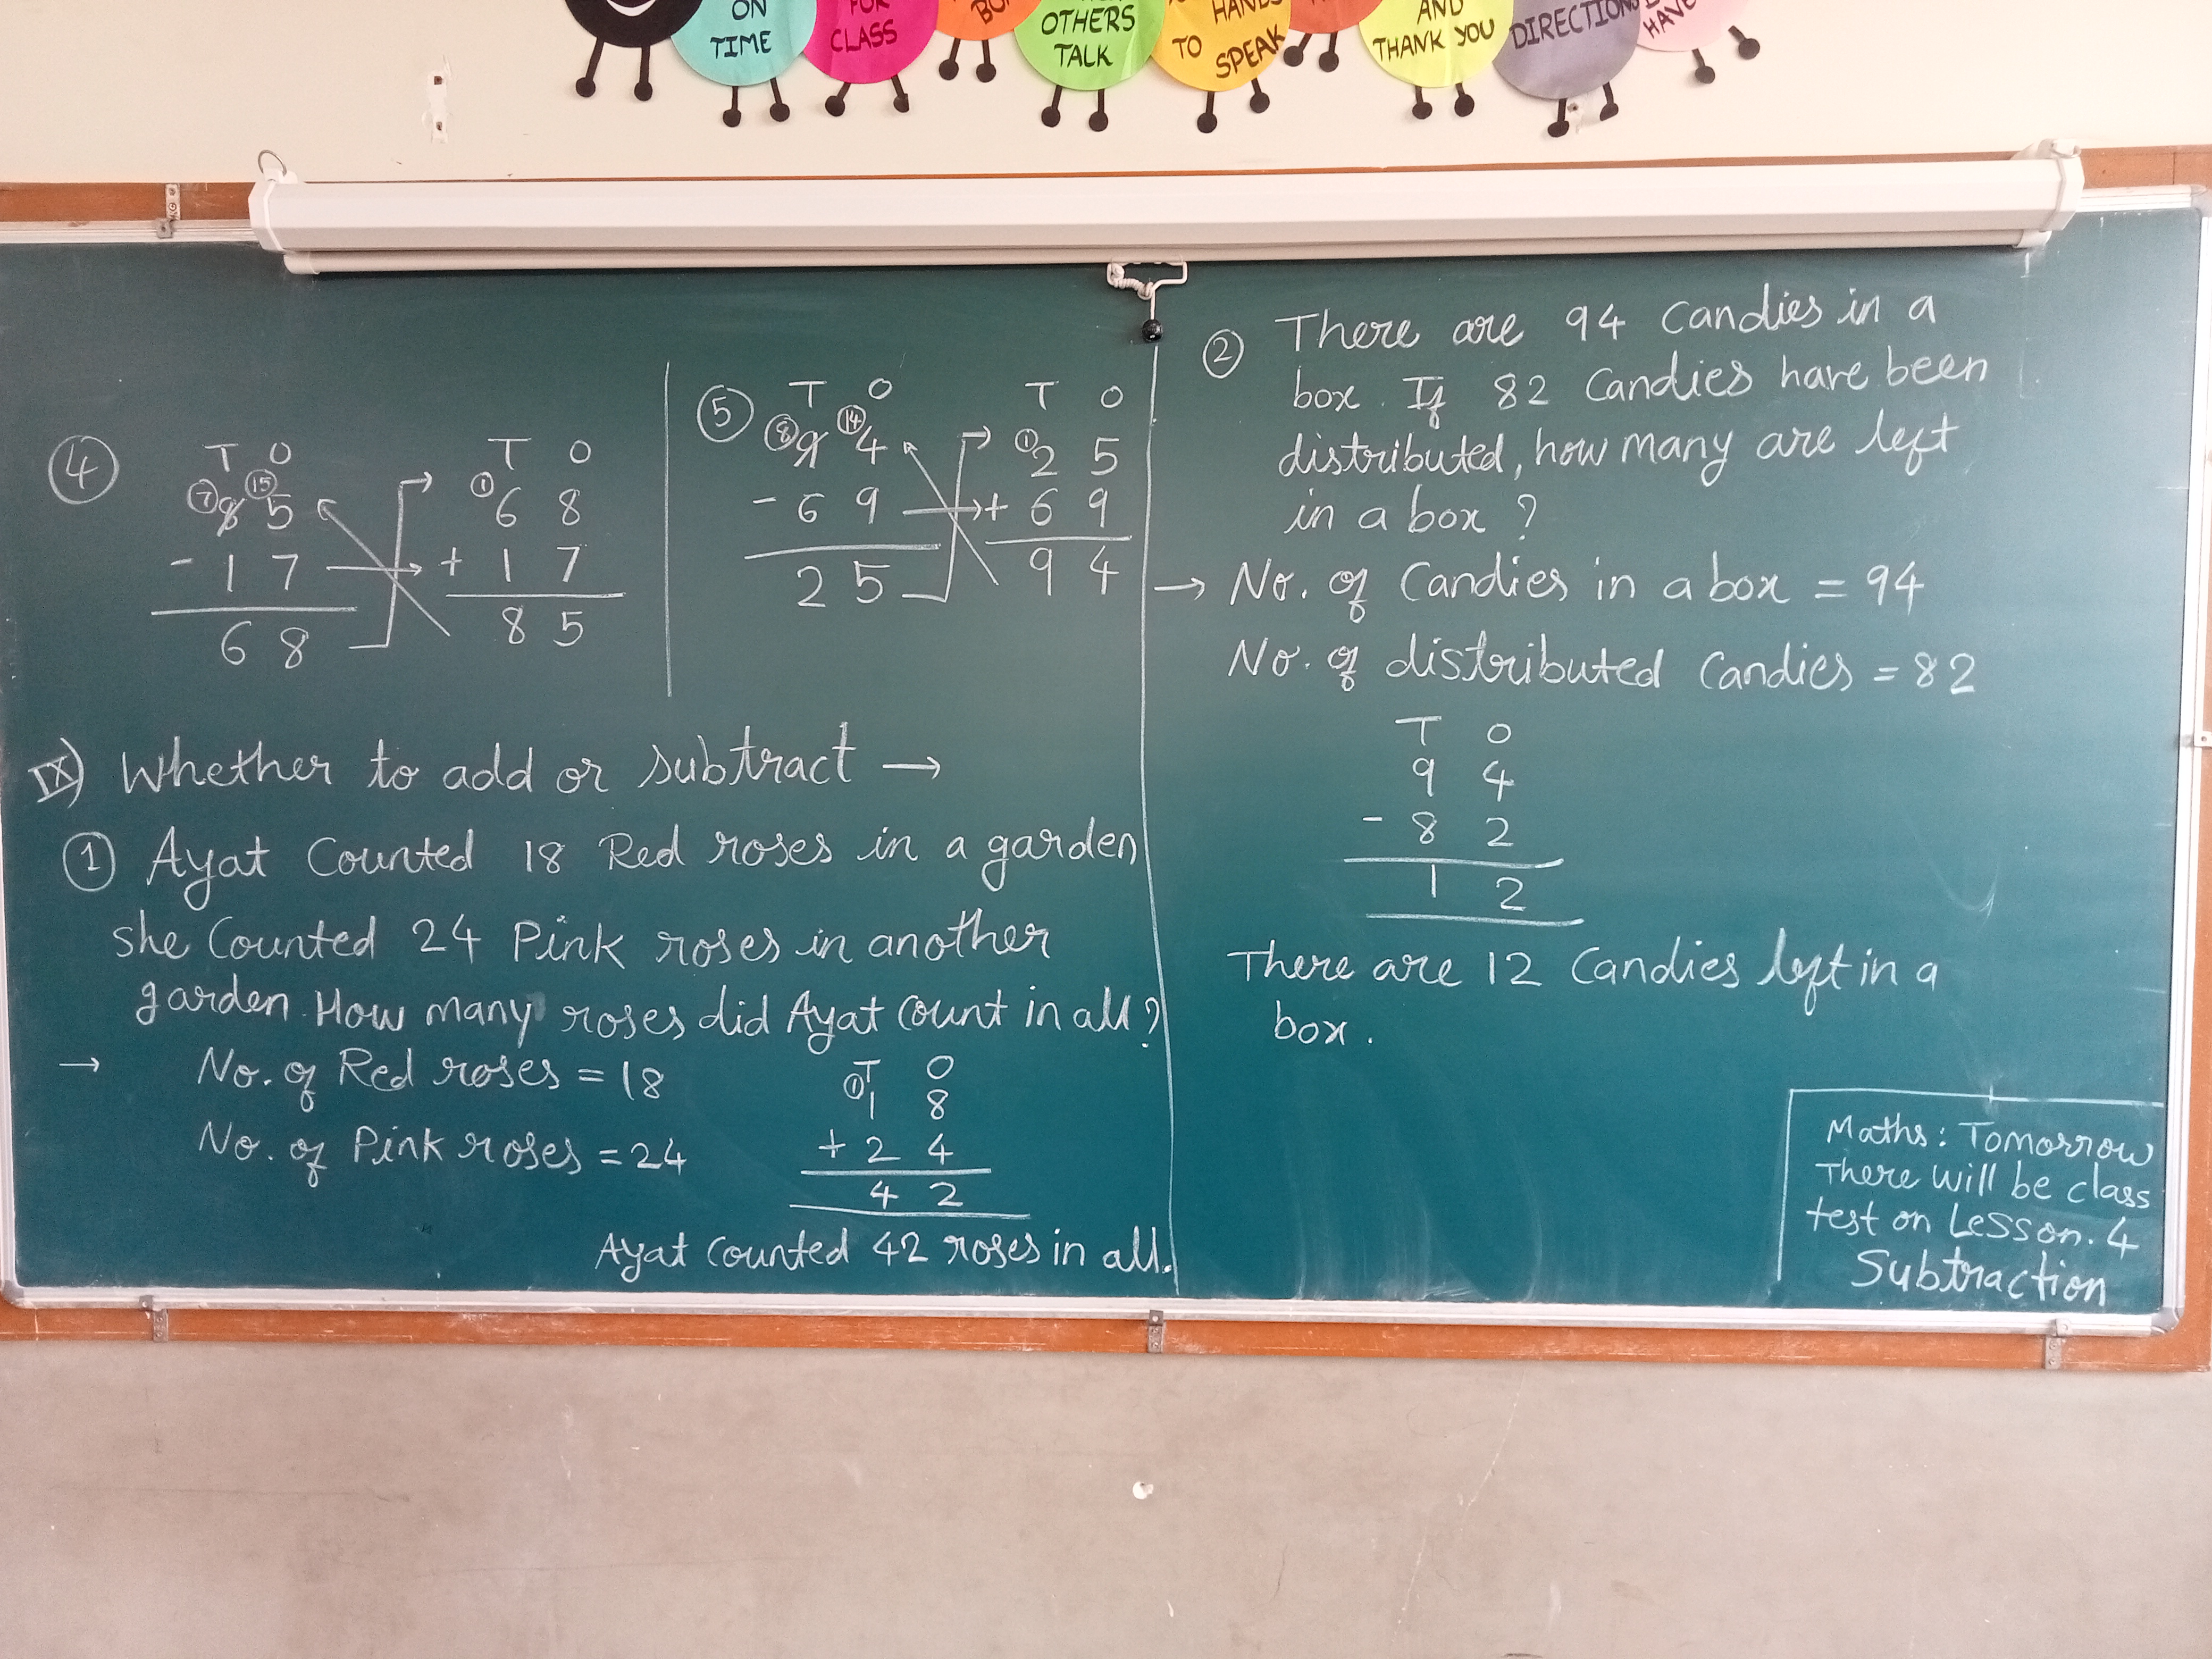 ON
TIME
FOR
CLASS
OTHERS
TALK
HANDS
TO SPEAK
AND
THANK YOU
DIRECTIONS
HAVE
4
T O
7 15
8 5
- 1 7
6 8
T O
1
6 8
+ 1 7
8 5
5
T O
8 14
9 4
- 6 9
2 5
T O
1
2 5
+ 6 9
9 4
IX) Whether to add or subtract →
1 Ayat Counted 18 Red roses in a garden
she Counted 24 Pink roses in another
garden. How many roses did Ayat Count in all?
→ No. of Red roses = 18
No. of Pink roses = 24
T O
1
1 8
+ 2 4
4 2
Ayat Counted 42 roses in all.
2 There are 94 Candies in a
box. If 82 Candies have been
distributed, how many are left
in a box ?
→ No. of Candies in a box = 94
No. of distributed Candies = 82
T O
9 4
- 8 2
1 2
There are 12 Candies left in a
box.
Maths: Tomorrow
There will be class
test on Lesson. 4
Subtraction